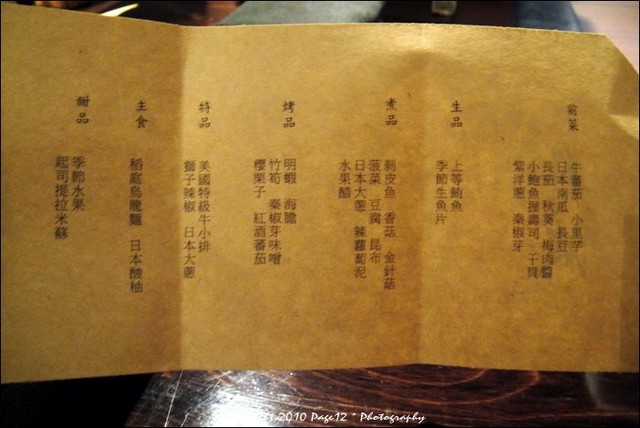 前菜
牛蕃茄 小里芋
日本南瓜 長豆
長茄 秋葵 梅肉醬
小鮑魚握壽司 干貝
紫洋蔥 秦椒芽
生品
上等鮪魚
季節生魚片
煮品
剝皮魚 香菇 金針菇
菠菜 豆腐 昆布
日本大蔥 辣蘿蔔泥
水果醋
烤品
明蝦 海膽
竹筍 秦椒芽味噌
櫻栗子 紅酒蕃茄
特品
美國特級牛小排
獅子辣椒 日本大蔥
主食
稻庭烏龍麵 日本酸柚
甜品
季節水果
起司提拉米蘇
2010 Page12 * Photography